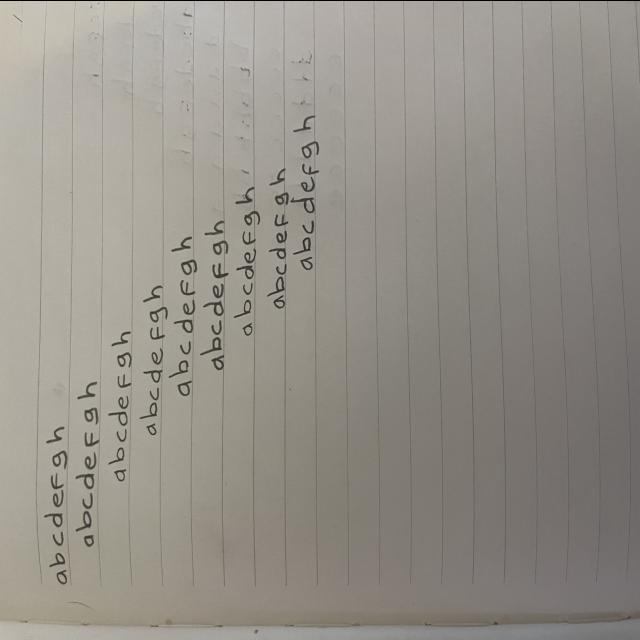 abcdefgh
abcdefgh
abcdefgh
abcdefgh
abcdefgh
abcdefgh
abcdefgh
abcdefgh
abcdefgh